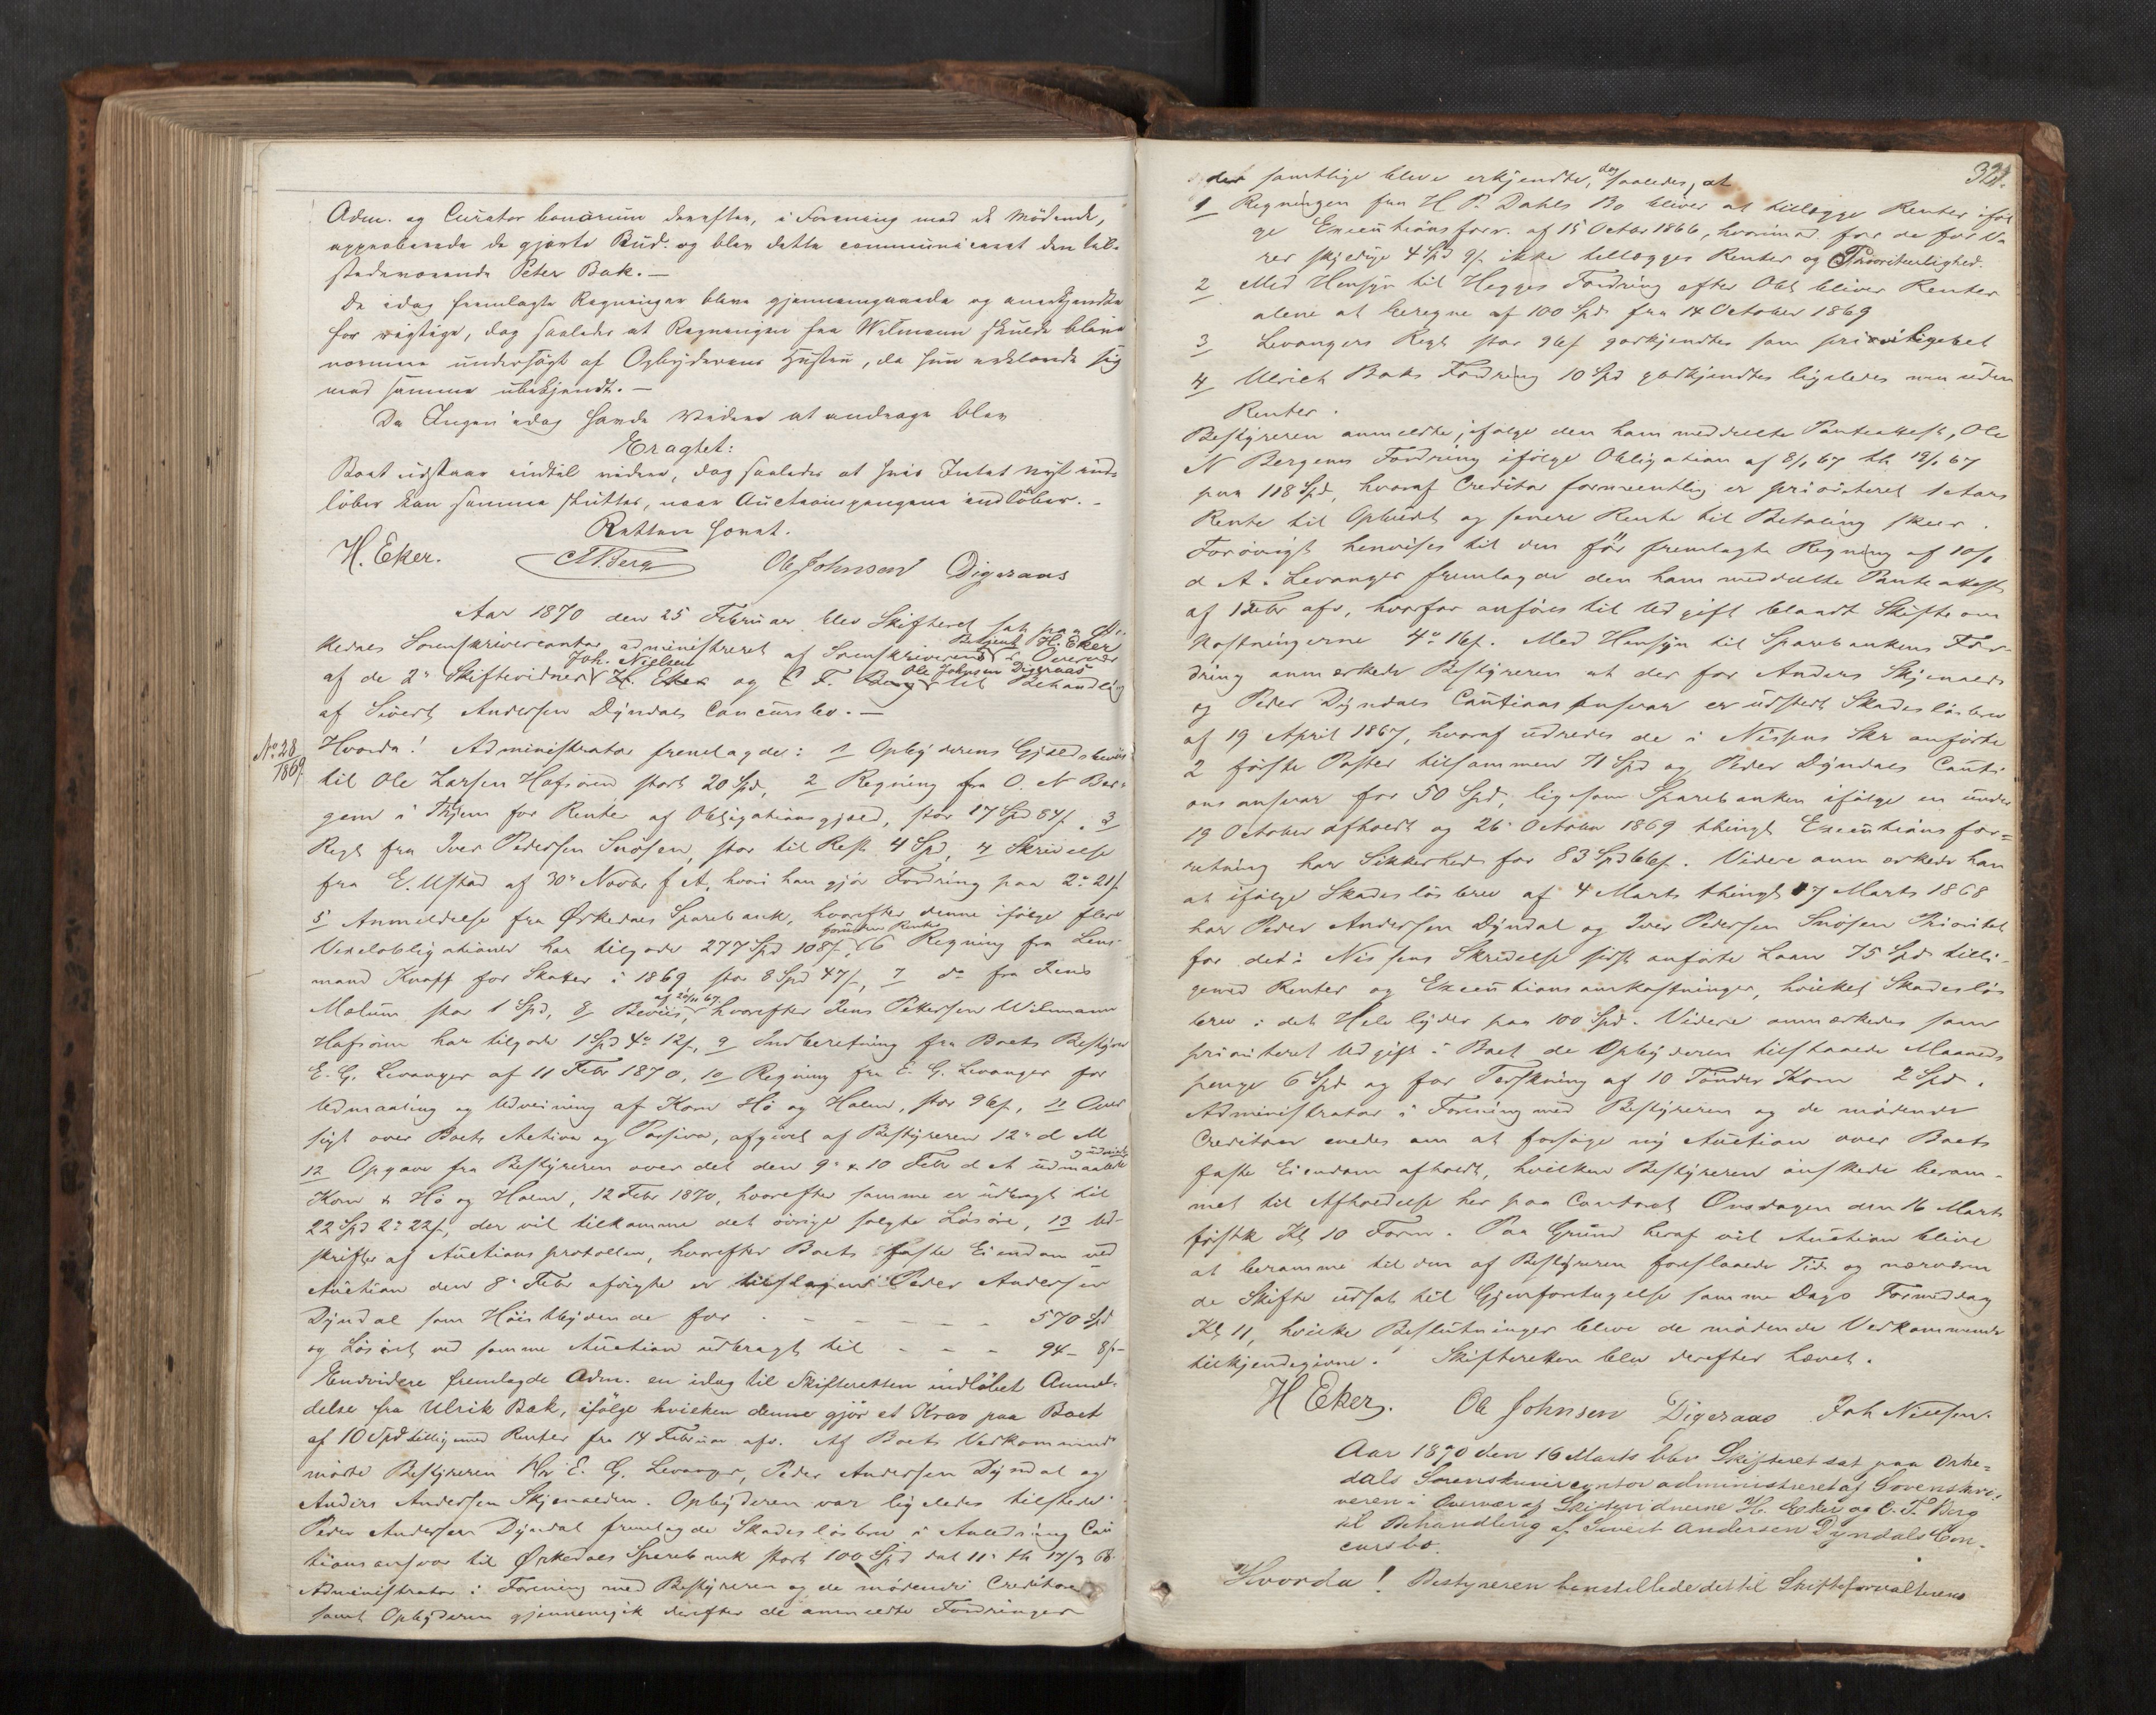 Adm. og Curator bonorum derefter, i Forening med de Mödende,
approberede de gjorte Bud. og blev dette communiceret den til-
stedeværende Peter Bak.—
De idag fremlagte Regninger bleve gjennemgaaede og anerkjendte
for rigtige, dog saaledes at Regningen fra Wilmann skulde blive
nærmere undersögt af Opbyderens Hustru, da hun erklærede sig
med samme ubekjendt.—
Da Ingen idag havde Videre at andrage blev
Eragtet:
Boet udstaar indtil videre, dog saaledes at hvis Intet nyt ind-
löber kan samme sluttes, naar Auctionspengene indlöber.—
Retten hævet.
H. Eker. C F Berg Ole Johnsen Digeraas
Aar 1870 den 25 Februar blev Skifteret sat paa Or-
kedals Sorenskrivercontor administreret af Sorenskriveren i Overvær
Betjent H. Eker
af de 2de Skiftevidner H. Eker og C. F. Berg til Behandling
Joh. Nielsen Ole Johnsen Digeraas
af Sivert Andersen Dyndals Concursbo.—
No 28/1869
Hvorda! Administrator fremlagde: 1 Opbyderens Gjældsbeviis
til Ole Larsen Hafsönn stort 20 Spd, 2 Regning fra O. N Ber-
gem i Thjem for Renter af Obligationsgjæld, stor 17 Spd 84 s, 3
Regt fra Iver Pedersen Snösen, stor til Rest 4 Spd, 4 Skrivelse
fra E. Ustad af 30te Novbr f A, hvori han gjör Fordring paa 2 21 s
5 Anmeldelse fra Ørkedals Sparebank, hvorefter denne ifölge flere
Vexelobligationer har tilgode 277 Spd 108 s, foruden Renter 6 Regning fra Lens-
mand Knoff for Skatter i 1869 stor 8 Spd 47 s, 7 do fra Jens
Mælum stor 1 Spd, 8 Beviis, hvorefter Jens Pettersen Wilmann
Hafsönn har tilgode 1 Spd 4 12 s, 9 Indberetning fra Boets Bestyrer
E. G. Levanger af 11 Febr 1870, 10 Regning fra E. G. Levanger for
Udmaaling og Udveining af Korn Hö og Halm, stor 96 s, 11 Over
sigt over Boets Activa og Passiva, afgivet af Bestyreren 12te d M
12 Opgave fra Bestyreren over det den 9de & 10 Febr d A udmaalte
Korn & Hö og Halm, 12 Febr 1870, hvorefter samme er udbragt til
22 Spd 2 22 s, der vil tilkomme det övrige solgte Lösöre, 13 Ud-
skrifter af Auctions protocollen, hvorefter Boets faste Eiendom ved
Auction den 8de Febr afvigte er tilslagen Peder Andersen
Dyndal som Höistbydende for - - - - - - 570 Spd
og Lösöret ved samme Auction udbragt til - - - 94 - 8 s -
Endvidere fremlagde Adm. en idag til Skifteretten indlöbet Anmel-
delse fra Ulrik Bak, ifölge hvilken denne gjör et Krav paa Boet
af 10 Spd tilligemed Renter fra 14 Februar afv. Af Boets Vedkommend
mödte Bestyreren Hr E. G. Levanger, Peder Andersen Dyndal og
Anders Andersen Skjenalden. Opbyderen var ligeledes tilstede.
Peder Andersen Dyndal fremlagde Skadeslösbrev i Anledning Cau
tionsansvar til Ørkedals Sparebank stort 100 Spd dat 11te th 17/3 68.
Administrator i Forening med Bestyreren og de mödende Creditorer
samt Opbyderen gjennemgik derefter de anmeldte Fordringer
322.
der samtlige bleve erkjendte, dog saaledes, at
1 Regningen fra H P. Dahls Bo bliver at tillægge Renter iföl
ge Executionsforr. af 15 Octbr 1866, hvorimod for de for Va
rer skyldige 4 Spd 9 s. ikke tillægges Renter og Prioriteerlighed.
2 Med Hensyn til Hegges Fordring efter Obl bliver Renter
alene at beregne af 100 Spd. fra 14 October 1869
3 Levangers Regt stor 96 s godkjendtes som privilligeret
4 Ulrich Baks Fordring 10 Spd godkjendtes ligeledes men uden
Renter.
Bestyreren anmeldte, ifölge den ham meddeelte Panteattest, Ole
N Bergems Fordring ifölge Obligation af 8/6 67 th 19/6 67
paa 118 Spd, hvoraf Creditor formeentlig er prioriteret 1 Aars
Rente til Opbudet og senere Rente til Betaling skeer.
Forövrigt henvises til den för fremlagte Regning af 10/1
d A. Levanger fremlagde den ham meddeelte Panteattest
af 1 Febr afv, hvorfor anföres til Udgift blandt Skifteom
kostningerne 4 16 s. Med Hensyn til Sparebankens For-
dring anmærkede Bestyreren at der for Anders Skjenalds
og Peder Dyndals Cautionsansvar er udstedt Skadeslösbrev
af 19 April 1867, hvoraf udredes de i Nissens Skr anförte
2 förste Poster tilsammen 71 Spd og Peder Dyndals Cauti
ons ansvar for 50 Spd, ligesom Sparebanken ifölge en under
19 October afholdt og 26de October 1869 thingl Executionsfor=
retning har Sikkerhed for 83 Spd 66 s. Videre anmærkede han
at ifölge Skadeslösbrev af 4 Marts thingl 17 Marts 1868
har Peder Andersen Dyndal og Iver Pedersen Snösen Prioritet
for det i Nissens Skrivelse sidst anförte Laan 75 Spd tilli-
gemed Renter og Executionsomkostninger, hvilket Skadeslös
brev i det Hele lyder paa 100 Spd. Videre anmærkedes som
prioriteret Udgift i Boet de Opbyderen tilstaaede Maaneds
penge 6 Spd og for Tærskning af 10 Tönder Korn 2 Spd.
Administrator i Forening med Bestyreren og de mödende
Creditorer enedes om at forsöge ny Auction over Boets
faste Eiendom afholdt, hvilken Bestyreren önskede beram-
met til Afholdelse her paa Contoret Onsdagen den 16 Marts
förstk Kl 10 Form. Paa Grund heraf vil Auction blive
at beramme til den af Bestyreren foreslaaede Tid og nærværen
de Skifte udsat til Gjenforetagelse samme Dags Formiddag
Kl 11, hvilke Beslutninger bleve de mödende Vedkommende
tilkjendegivne. Skifteretten blev derefter hævet.
H Eker. Ole Johnsen Digeraas Joh Nielsen.
Aar 1870 den 16 Marts blev Skifteret sat paa Orke=
dals Sorenskrivercontor administreret af Sorenskri-
veren i Overvær af Skiftevidnerne H. Eker og C. F. Berg
til Behandling af Sivert Andersen Dyndals Con-
cursbo.
Hvorda! Bestyreren henstillede det til Skifteforvalterens